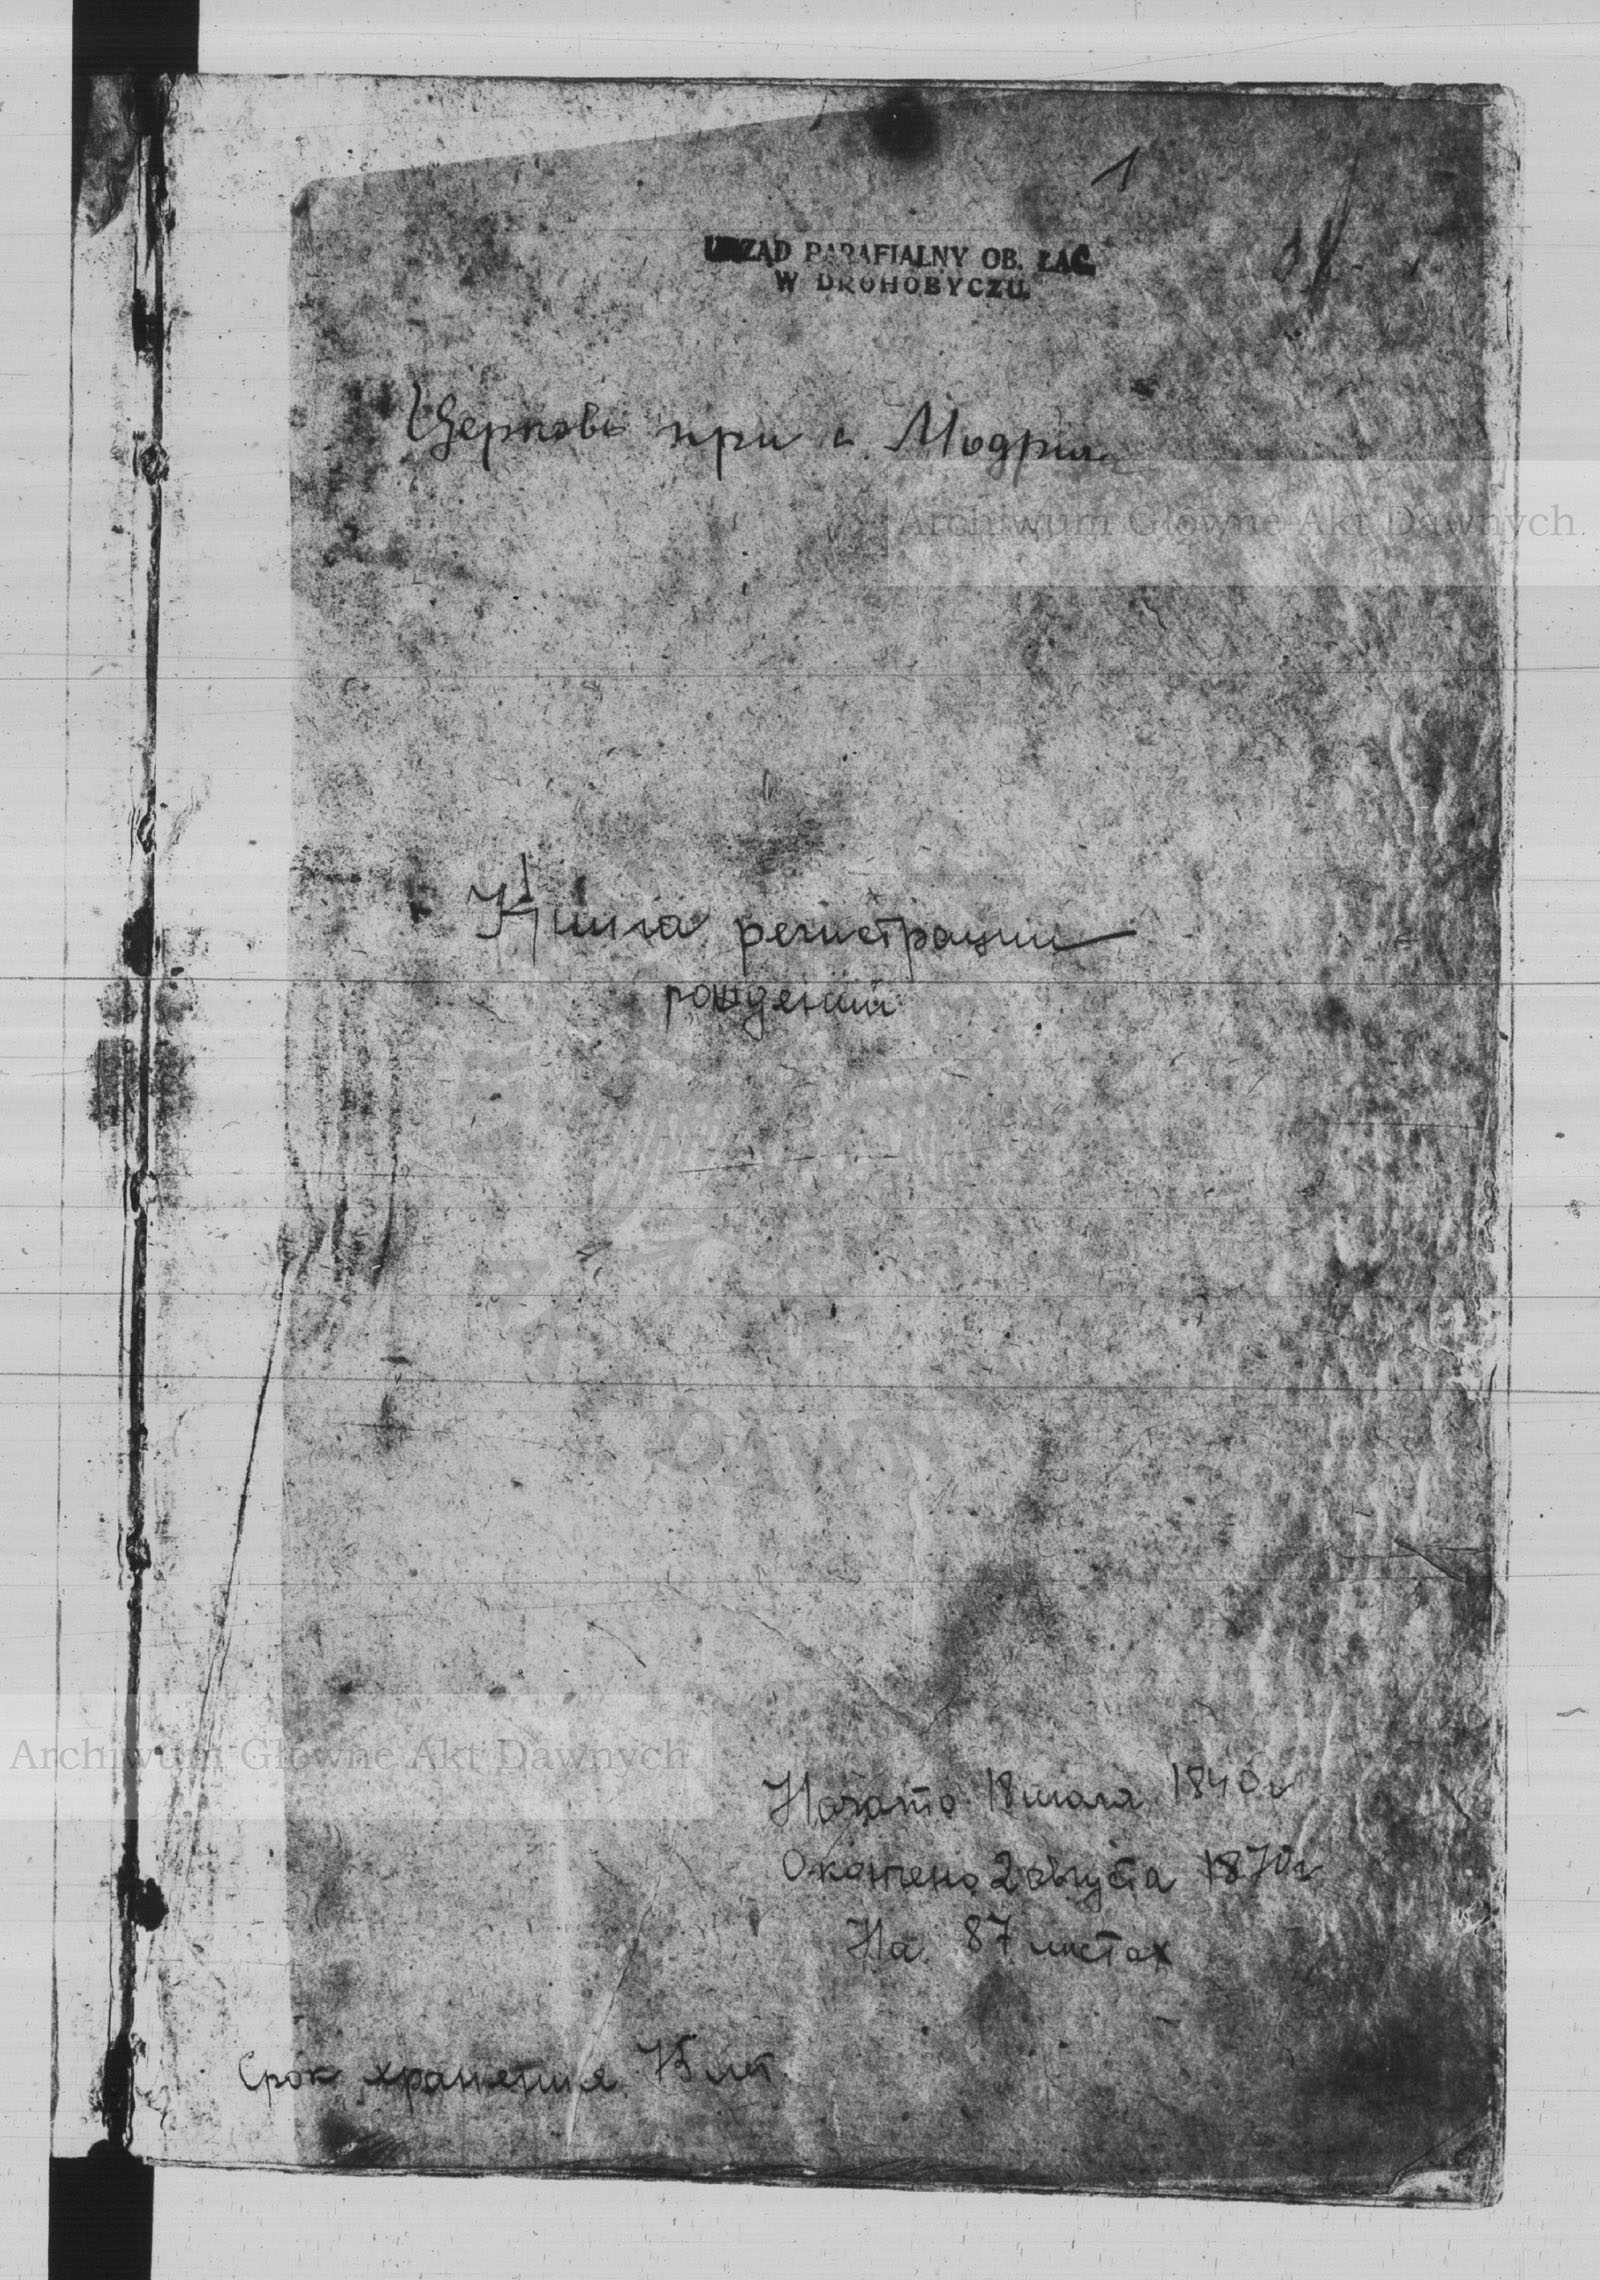 1
URZĄD PARAFIALNY OB. ŁAC.
W DROHOBYCZU.
Церковь при с. Модрич
Archiwum Główne Akt Dawnych
Книга регистрации
рождений
DAWN
Archiwum Główne Akt Dawnych
Начато 18 июля 1840 г
Окончено 2 августа 1870 г
На 87 листах
Срок хранения 75 лет.